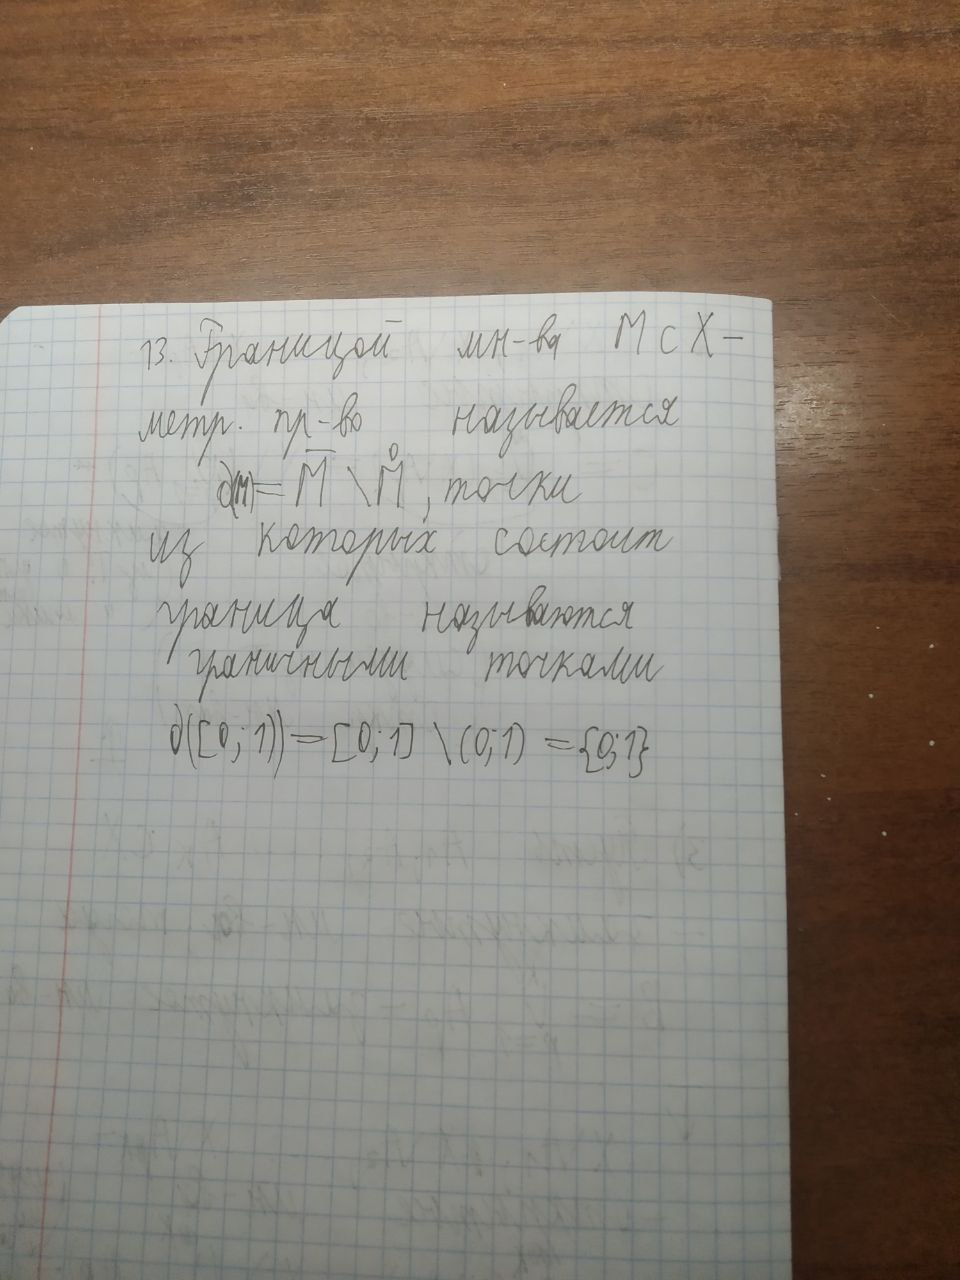 13. Границой мн-ва M ⊂ X –
метр. пр-во называется
∂(M) = M̅ \ M̊, точки
из которых состоит
граница называются
граничными точками
∂([0; 1)) = [0; 1] \ (0; 1) = {0; 1}